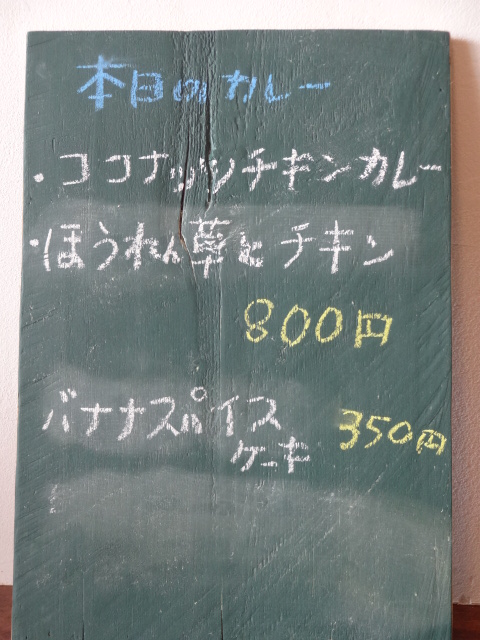 本日のカレー
・ココナッツチキンカレー
・ほうれん草とチキン
800円
バナナスパイス
ケーキ 350円